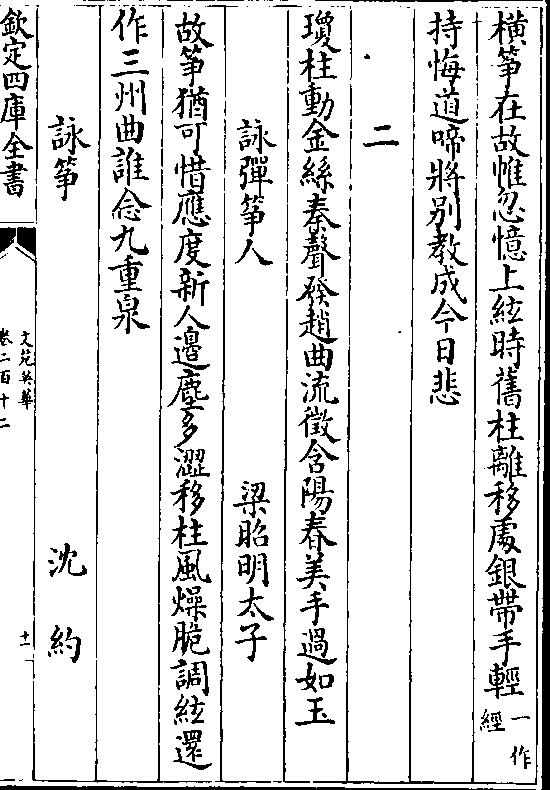 橫箏在故帷忽憶上絃時舊柱離移處銀帶手輕一作經
持悔道啼將别教成今日悲
二
瓊柱動金絲秦聲發趙曲流徵含陽春美手過如玉
詠彈箏人 梁昭明太子
故箏猶可惜應度新人邉塵多澀移柱風燥脆調絃還
作三州曲誰念九重泉
詠箏 沈約
欽定四庫全書
文苑英華
卷二百十二
十一